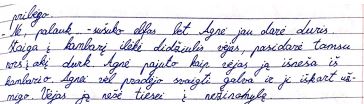 pribėgo.
- Ne, palauk - sušuko elfas bet Agnė jau darė duris.
Staiga į kambarį įlėkė didžiulis vėjas, pasidarė tamsu
nors į akį durk. Agnė pajuto kaip vėjas ją išneša iš
kambario. Agnei vėl pradėjo svaigti galva ir ji iškart už-
migo. Vėjas ją nešė tiesei į nežinomybę.